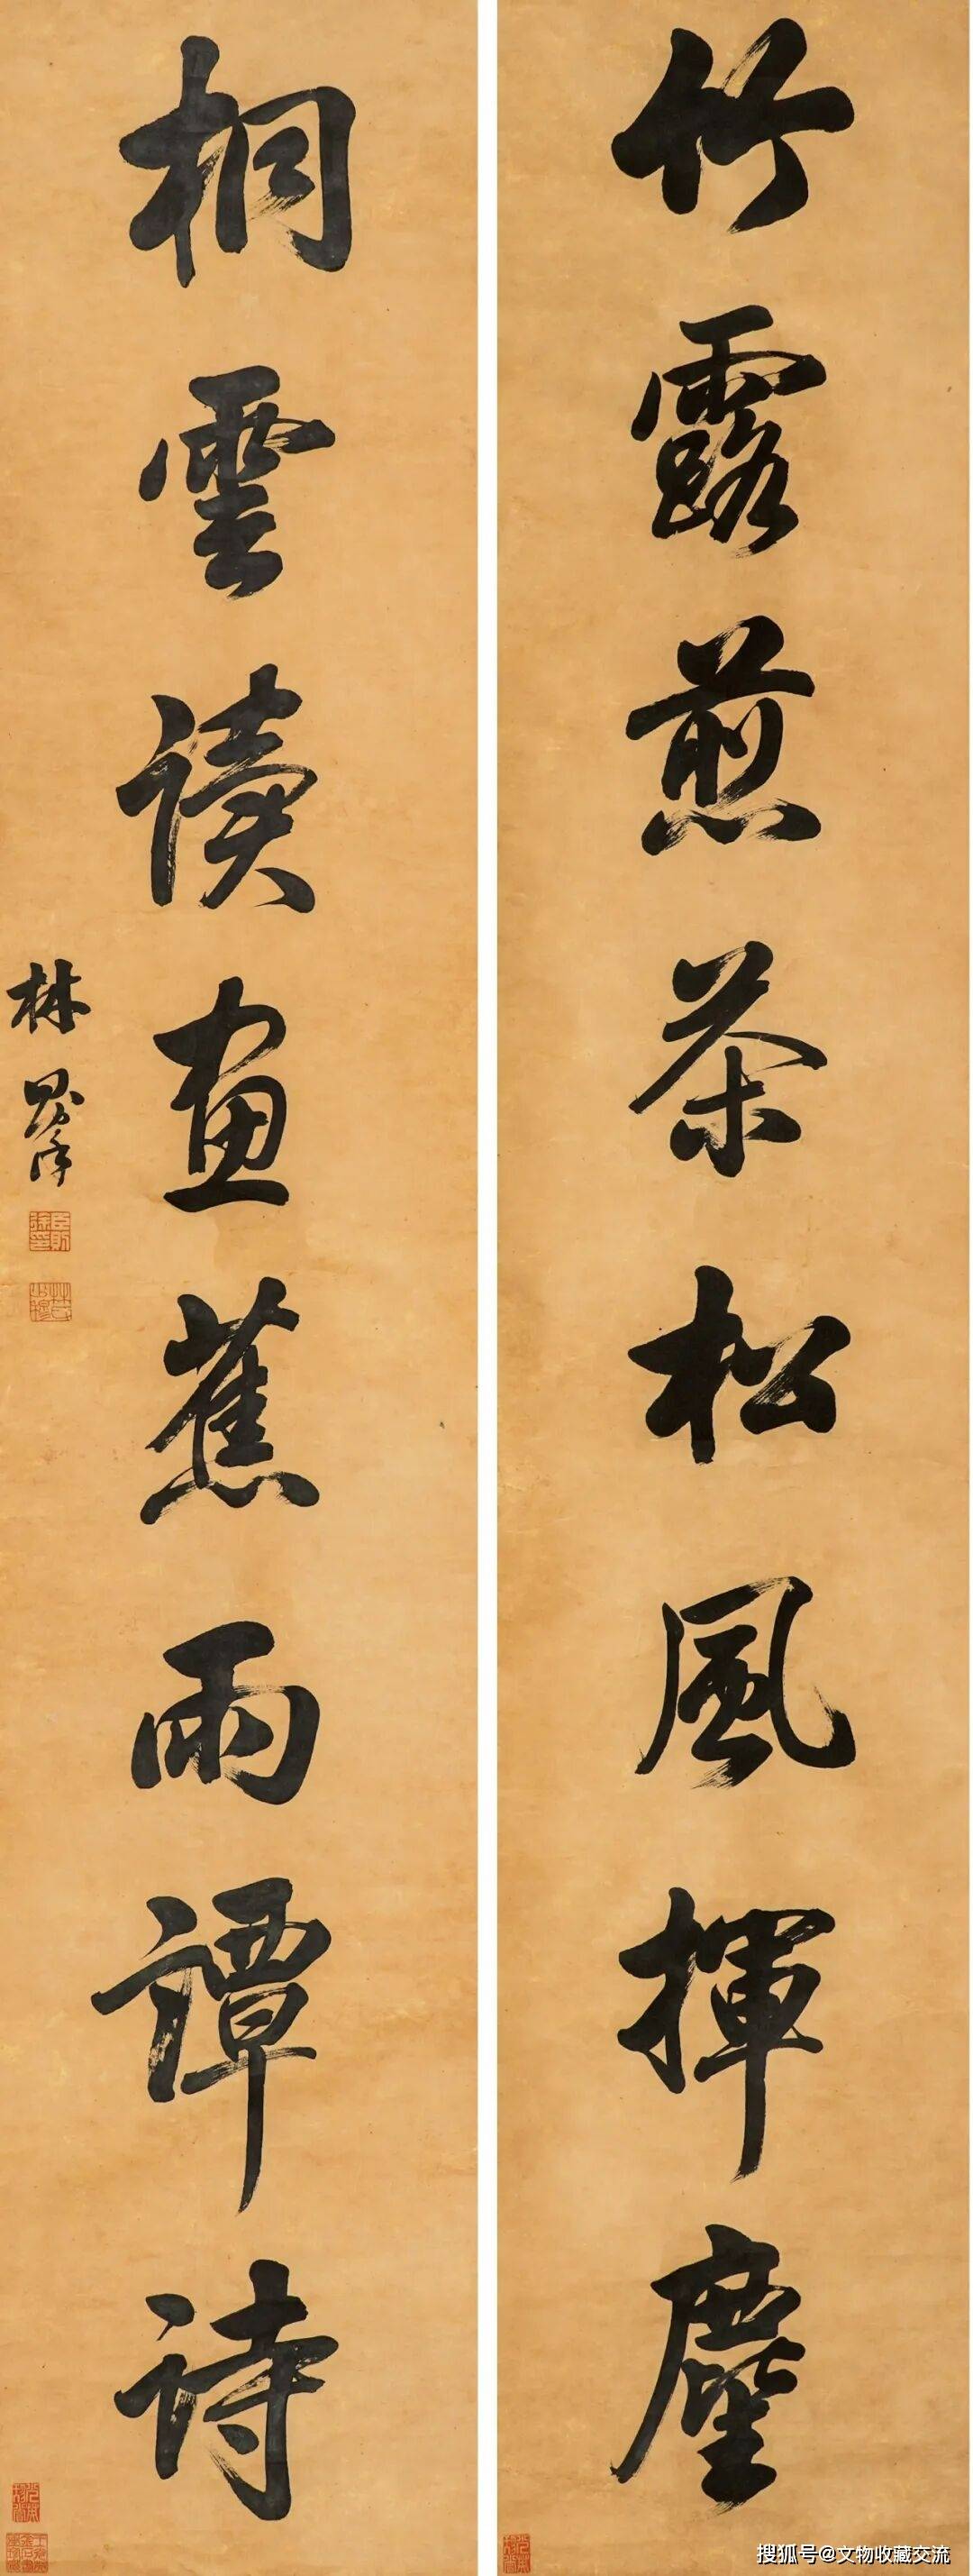 竹露煎茶松風揮麈
桐雲讀畫蕉雨譚詩
林則徐
臣則徐印
搜狐号@文物收藏交流